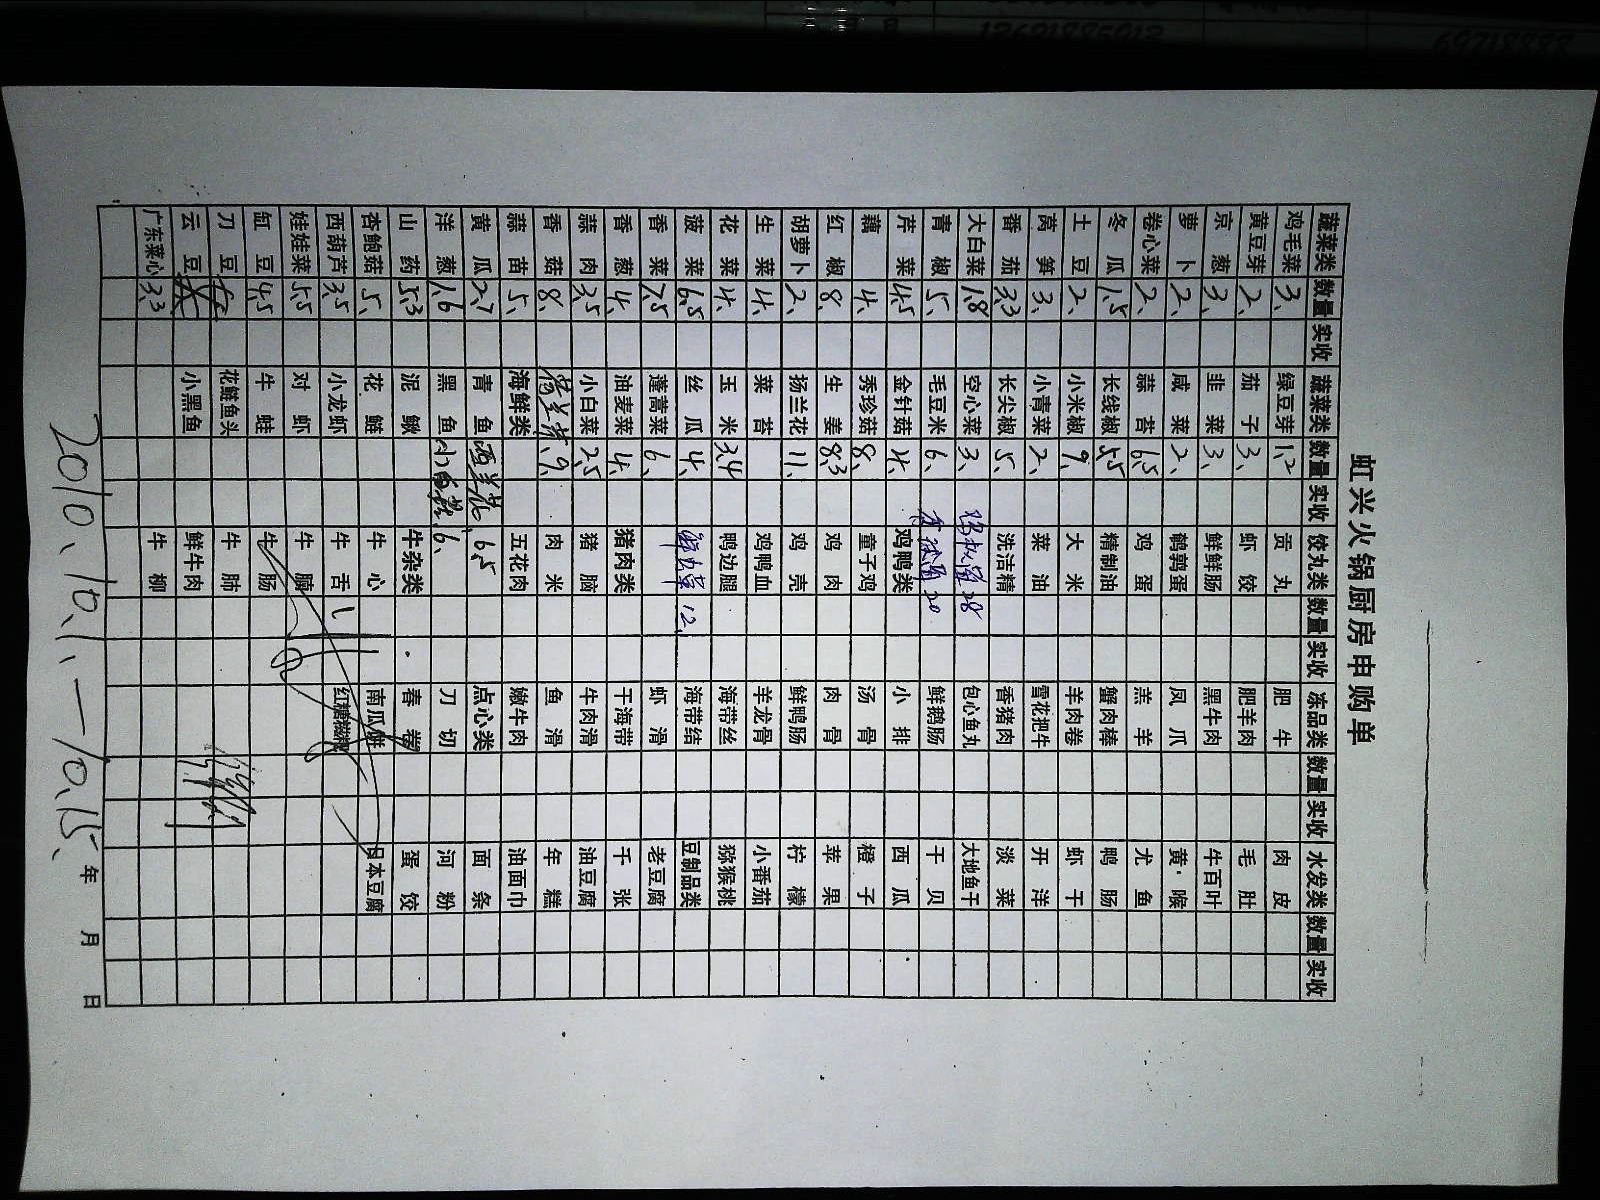 虹兴火锅厨房申购单
蔬菜类 数量 实收 蔬菜类 数量 实收 饺丸类 数量 实收 冻品类 数量 实收 水发类 数量 实收
鸡毛菜 3、 绿豆芽 1.2 贡丸 肥牛 肉皮
黄豆芽 2、 茄子 3、 虾饺 肥羊肉 毛肚
京葱 3、 韭菜 3、 鲜鲜肠 黑牛肉 牛百叶
萝卜 2、 咸菜 2、 鹌鹑蛋 凤爪 黄喉
卷心菜 2、 蒜苔 6.5 鸡蛋 羔羊 尤鱼
冬瓜 1.5 长线椒 5.5 精制油 蟹肉棒 鸭肠
土豆 2、 小米椒 9、 大米 羊肉卷 虾干
莴笋 3、 小青菜 2、 菜油 雪花把牛 开洋
番茄 3.3 长尖椒 5、 洗洁精 香猪肉 淡菜
大白菜 1.8 空心菜 3、 28 包心鱼丸 大地鱼干
青椒 5、 毛豆米 6、 20 鲜鹅肠 干贝
芹菜 4.5 金针菇 4、 鸡鸭类 小排 西瓜
藕 4、 秀珍菇 8、 童子鸡 汤骨 橙子
红椒 8、 生姜 8.3 鸡肉 肉骨 苹果
胡萝卜 2、 扬兰花 11、 鸡壳 鲜鸭肠 柠檬
生菜 4、 菜苔 鸡鸭血 羊龙骨 小番茄
花菜 4、 玉米 3.4 鸭边腿 海带丝 猕猴桃
菠菜 6.5 丝瓜 4、 12、 海带结 豆制品类
香菜 7.5 蓬蒿菜 6、 虾滑 老豆腐
香葱 4、 油麦菜 4、 猪肉类 干海带 千张
蒜肉 3.5 小白菜 2.5 猪脑 牛肉滑 油豆腐
香菇 8、 9、 肉米 鱼滑 年糕
蒜苗 5、 海鲜类 五花肉 嫩牛肉 油面巾
黄瓜 2.7 青鱼 西兰花 6.5 点心类 面条
洋葱 1.6 黑鱼 6、 刀切 河粉
山药 5.3 泥鳅 牛杂类 春卷 蛋饺
杏鲍菇 5、 花鲢 牛心 南瓜饼 日本豆腐
西葫芦 3.5 小龙虾 牛舌 红糖糍粑
娃娃菜 5.5 对虾 牛脑
缸豆 4.5 牛蛙 牛肠
刀豆 花鲢鱼头 牛肺
云豆 小黑鱼 鲜牛肉
广东菜心 3.3 牛柳
2010、10.1、一10.15、 年 月 日